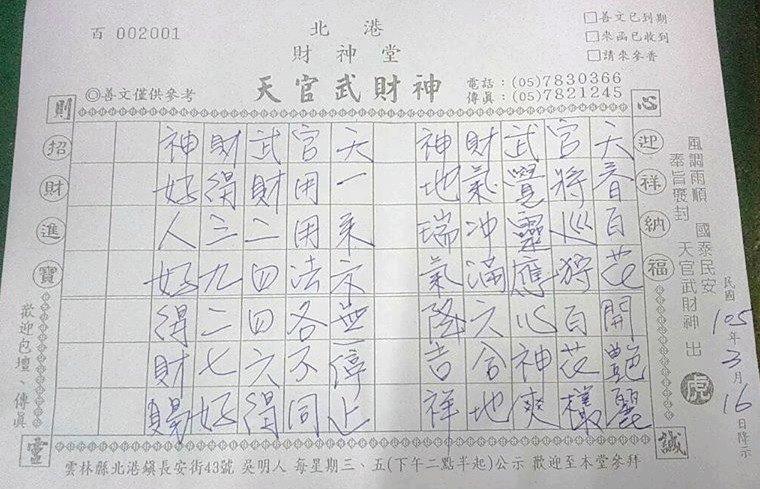 百 002001
北港
財神堂
天官武財神
◎善文僅供參考
電話：(05)7830366
傳真：(05)7821245
□善文已到期
□來函已收到
□請來參香
則
心
迎祥納福
誠
招財進寶
靈
天官武財神
春百花開艷麗
將巡狩百花
覺靈應心神爽
氣冲滿六合地
地瑞氣降吉祥
天官武財神
一來六無停止
用用法各不同
財二四四六得
得三九二七好
好人好得財賜
風調雨順 國泰民安
奉旨褒封 天官武財神 出
虎
民國105年3月16日降示
歡迎包壇、傳真
雲林縣北港鎮長安街43號 吳明人 每星期三、五(下午二點半起)公示 歡迎至本堂參拜